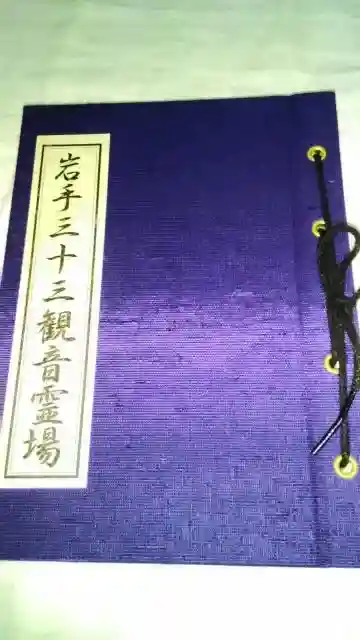 岩手三十三観音霊場